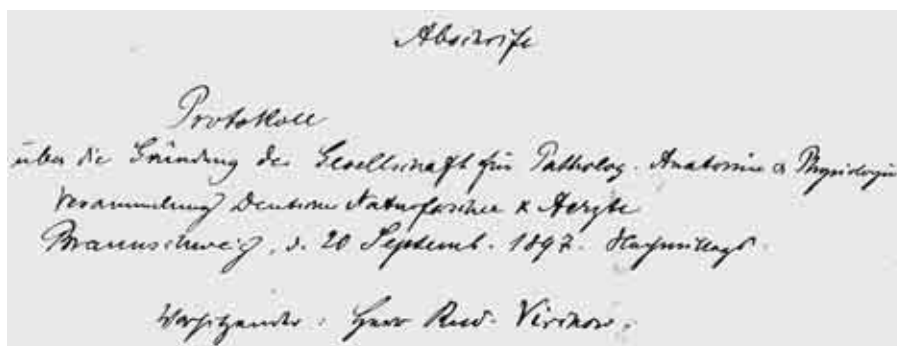 Abschrift
Protokoll
über die Gründung der Gesellschaft für Patholog. Anatomie & Physiologie
Versammlung Deutscher Naturforscher & Aerzte
Braunschweig, d. 20 Septemb. 1897. Nachmittags.
Vorsitzender: Herr Rud. Virchow.